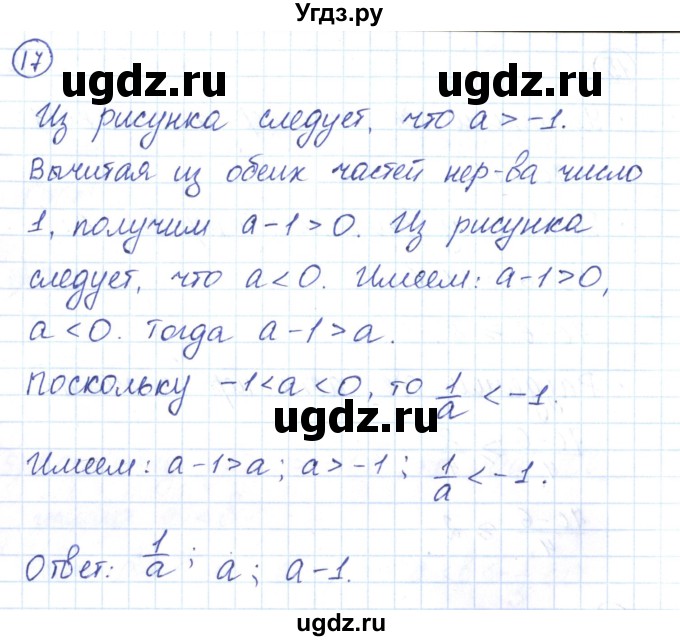 Угдз.ру
17
ugdz.ru ugdz.ru
Из рисунка следует, что a > -1.
Вычитая из обеих частей нер-ва число
1, получим a - 1 > 0. Из рисунка
следует, что a < 0. Имеем: a - 1 > 0,
a < 0. Тогда a - 1 > a.
Поскольку -1 < a < 0, то 1/a < -1.
ugdz.ru
Имеем: a - 1 > a; a > -1; 1/a < -1.
Ответ: 1/a; a; a - 1.
ugdz.ru ugdz.ru